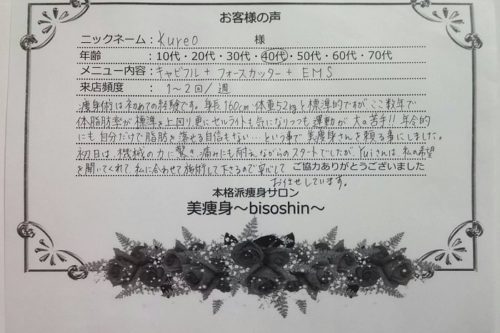 お客様の声
ニックネーム：Kureo 様
年齢：10代・20代・30代・40代・50代・60代・70代
メニュー内容：キャビフル + フォースカッター + EMS
来店頻度：1〜2回/週
痩身術は初めての経験です。身長160cm 体重52kgと標準的ですがここ数年で
体脂肪率が標準を上回り更にセルライトも気になりつつも運動が大の苦手!! 年令的
にも自分だけで脂肪を落せる自信もない という事で美痩身さんを頼る事にしました。
初日は、機械の力に驚き、痛みにも耐えながらのスタートでしたがYuiさんは私の希望
を聞いてくれて、私に合わせて施術して下さるので安心して ご協力ありがとうございました
おまかせしています。
本格派痩身サロン
美痩身〜bisoshin〜